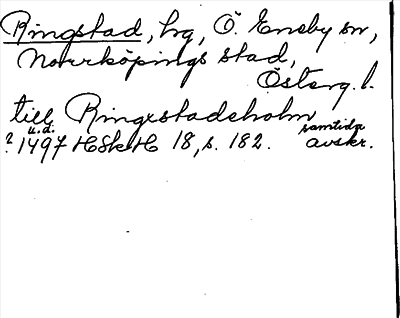 Ringstad, hg, Ö. Eneby sn,
Norrköpings stad,
Österg. l.
till Ringestadeholm
? u.d. 1497 HSkH 18, s. 182. samtida avskr.